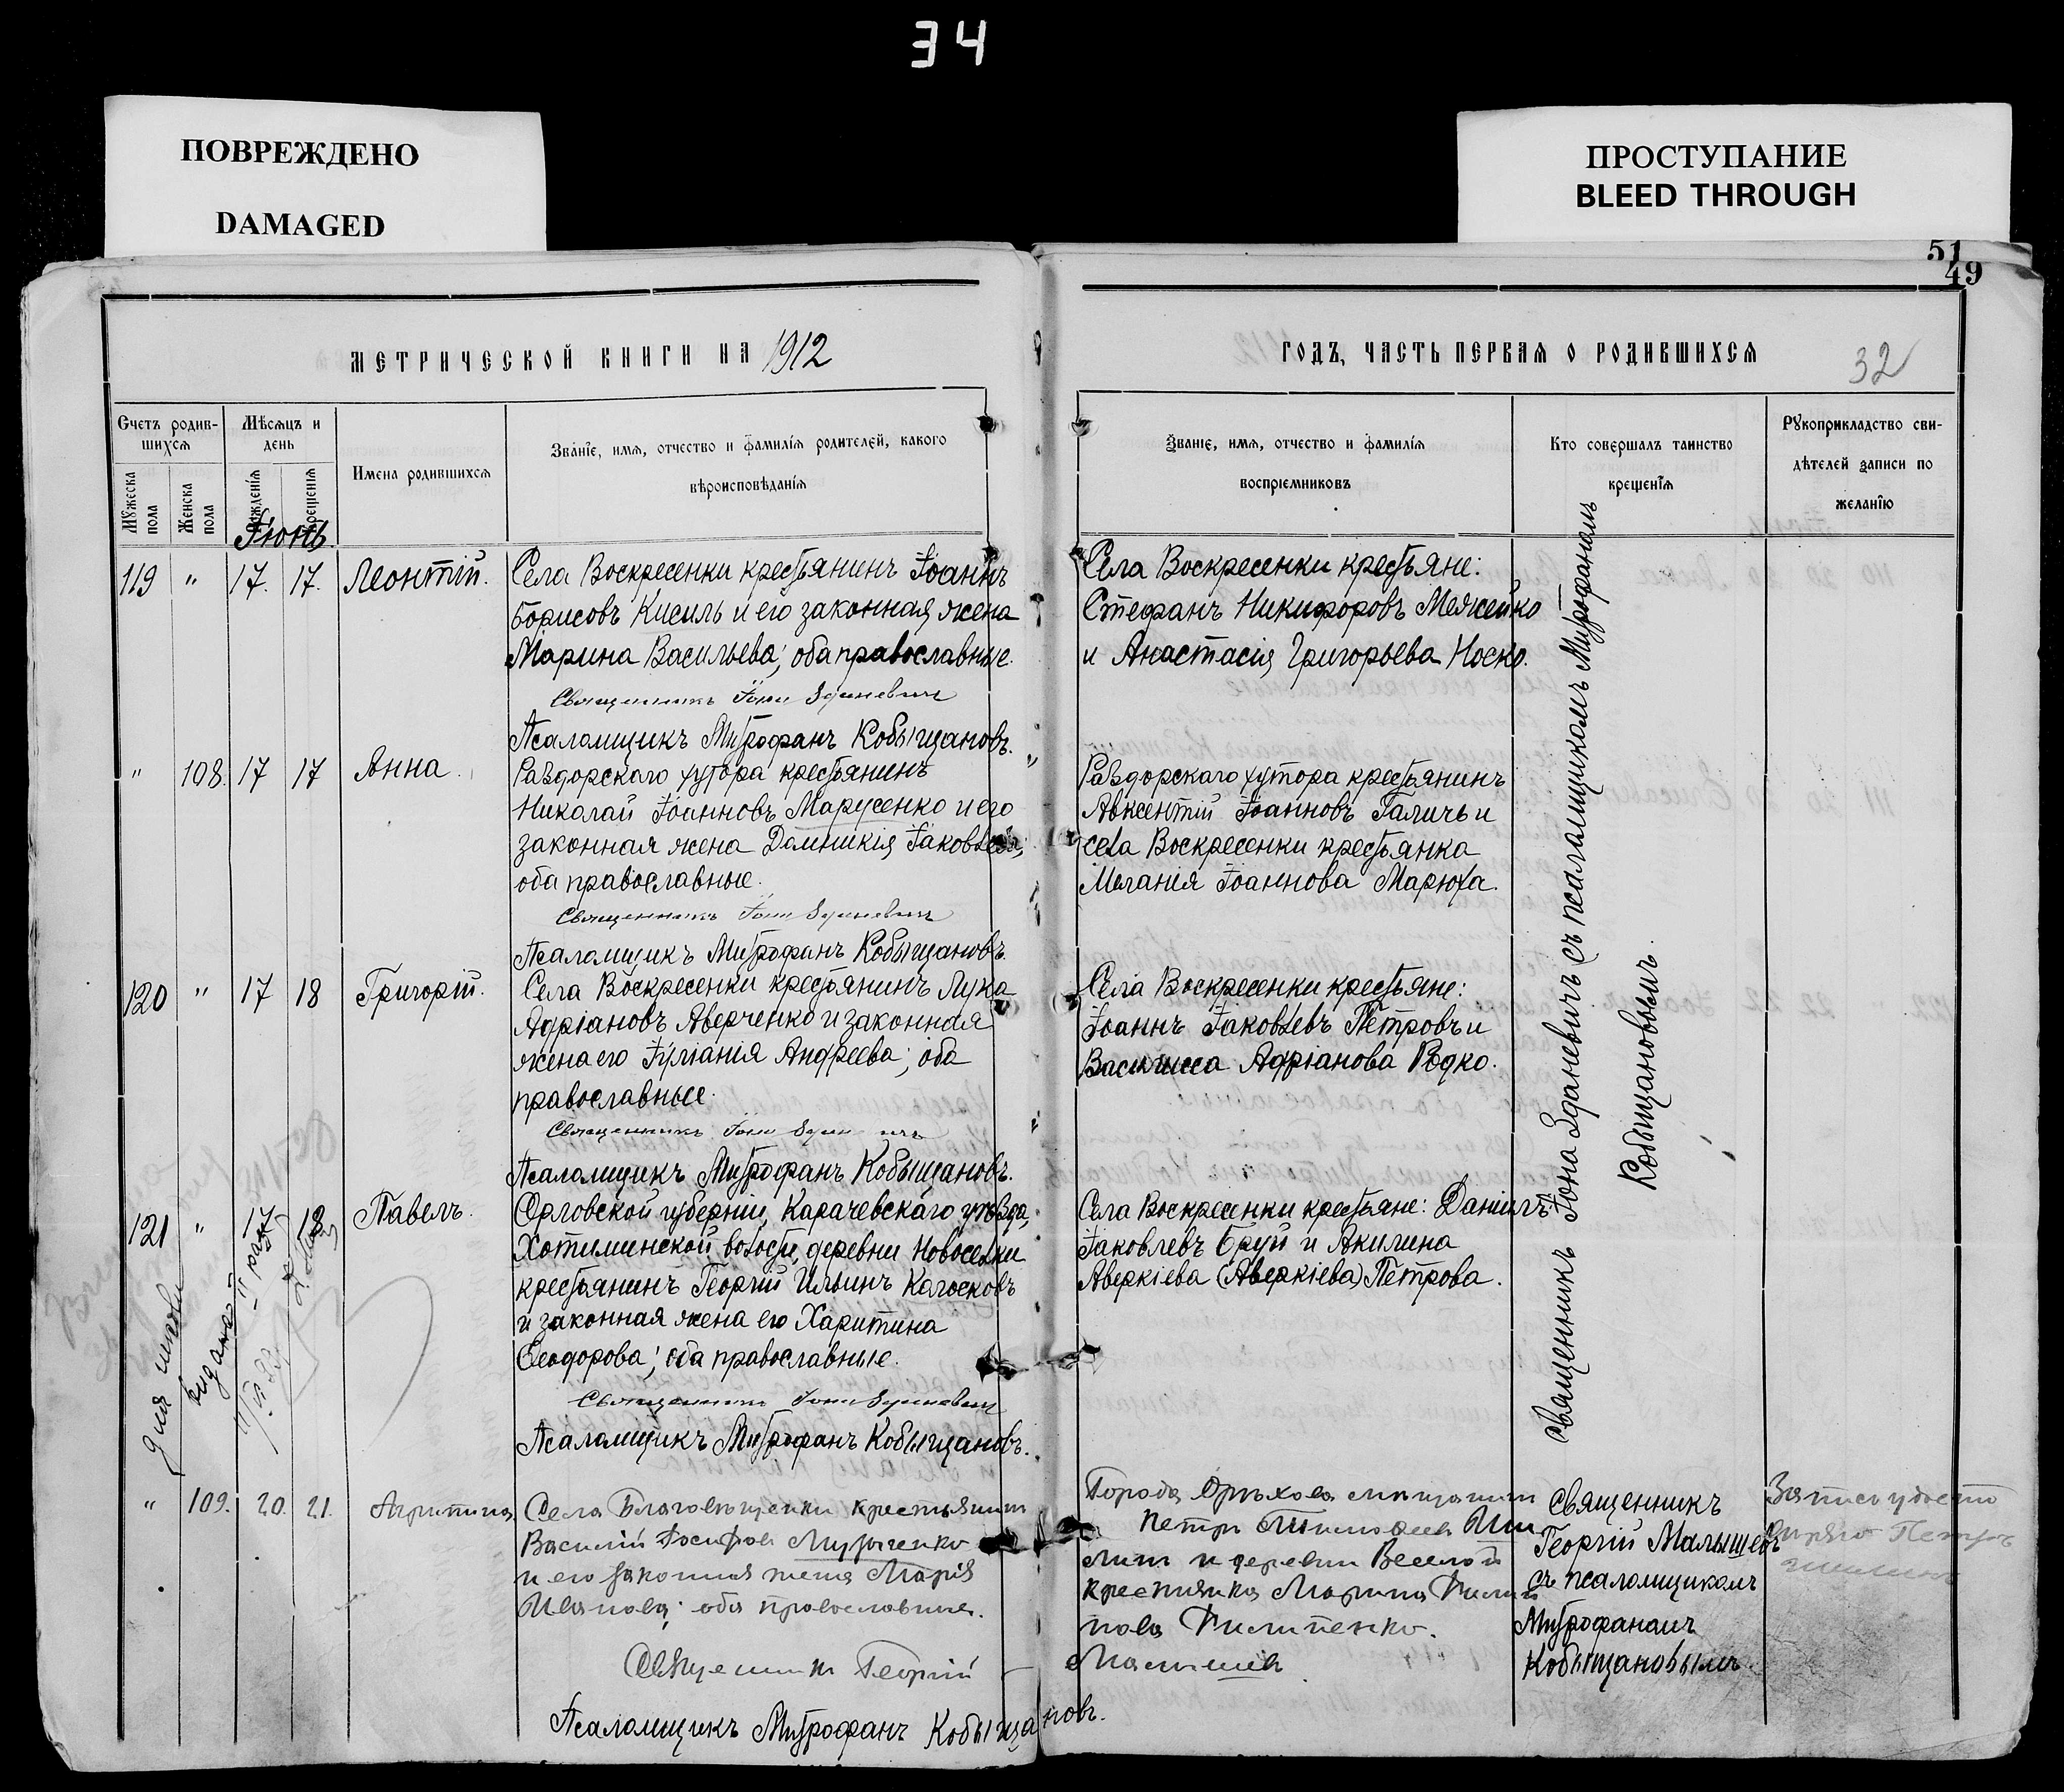 34
ПОВРЕЖДЕНО
DAMAGED
ПРОСТУПАНИЕ
BLEED THROUGH
51
49
МЕТРИЧЕСКОЙ КНИГИ НА 1912
Счетъ родив-
шихся
Мѣсяцъ и
день
Мужеска
пола
Женска
пола
рожденія
крещенія
Имена родившихся
Званіе, имя, отчество и фамилія родителей, какого
вѣроисповѣданія
Іюнь
119 " 17. 17. Леонтій.
Села Воскресенки крестьянинъ Іоаннъ
Борисовъ Кисиль и его законная жена
Марина Васильева; оба православные.
Священникъ Іона Зданевичъ
Псаломщикъ Митрофанъ Кобыщановъ.
" 108. 17 17 Анна.
Раздорскаго хутора крестьянинъ
Николай Іоанновъ Марусенко и его
законная жена Домникія Іаковлева;
оба православные.
Священникъ Іона Зданевичъ
Псаломщикъ Митрофанъ Кобыщановъ.
120 " 17 18 Григорій.
Села Воскресенки крестьянинъ Лука
Адріановъ Аверченко и законная
жена его Іуліанія Андреева; оба
православные.
Священникъ Іона
Псаломщикъ Митрофанъ Кобыщановъ.
121 " 17 18 Павелъ.
Орловской губерніи, Карачевскаго уѣзда,
Хотиминской волости, деревни Новоселки
крестьянинъ Георгій Ильинъ Колосковъ
и законная жена его Харитина
Ѳеодорова; оба православные.
Священникъ Іона Зданевичъ
Псаломщикъ Митрофанъ Кобыщановъ.
" 109. 20. 21. Агрипина
Села Благовѣщенки крестьянинъ
Василій Іосифовъ
и его законная жена Марія
Иванова; оба православные.
Священникъ Георгій
Псаломщикъ Митрофанъ Кобыщановъ.
ГОДЪ, ЧАСТЬ ПЕРВАЯ О РОДИВШИХСЯ
32
Званіе, имя, отчество и фамилія
воспріемниковъ
Кто совершалъ таинство
крещенія
Рукоприкладство сви-
дѣтелей записи по
желанію
Села Воскресенки крестьяне:
Стефанъ Никифоровъ Межейко
и Анастасія Григорьева Носко.
Раздорскаго хутора крестьянинъ
Авксентій Іоанновъ Галичъ и
села Воскресенки крестьянка
Меланія Іоаннова Марюха.
Села Воскресенки крестьяне:
Іоаннъ Іаковлевъ Петровъ и
Василисса Адріанова Редко.
Села Воскресенки крестьяне: Даніилъ
Іаковлевъ Бруй и Акилина
Аверкіева (Аверкіева) Петрова.
Города Орѣхова мѣщанинъ
Петръ
и деревни Веселой
крестьянка Марина Филип
пова Пилипенко.
Малышевъ
Священникъ Іона Зданевичъ съ псаломщикомъ Митрофаномъ
Кобыщановымъ.
Священникъ
Георгій Малышевъ
съ псаломщикомъ
Митрофаномъ
Кобыщановымъ.